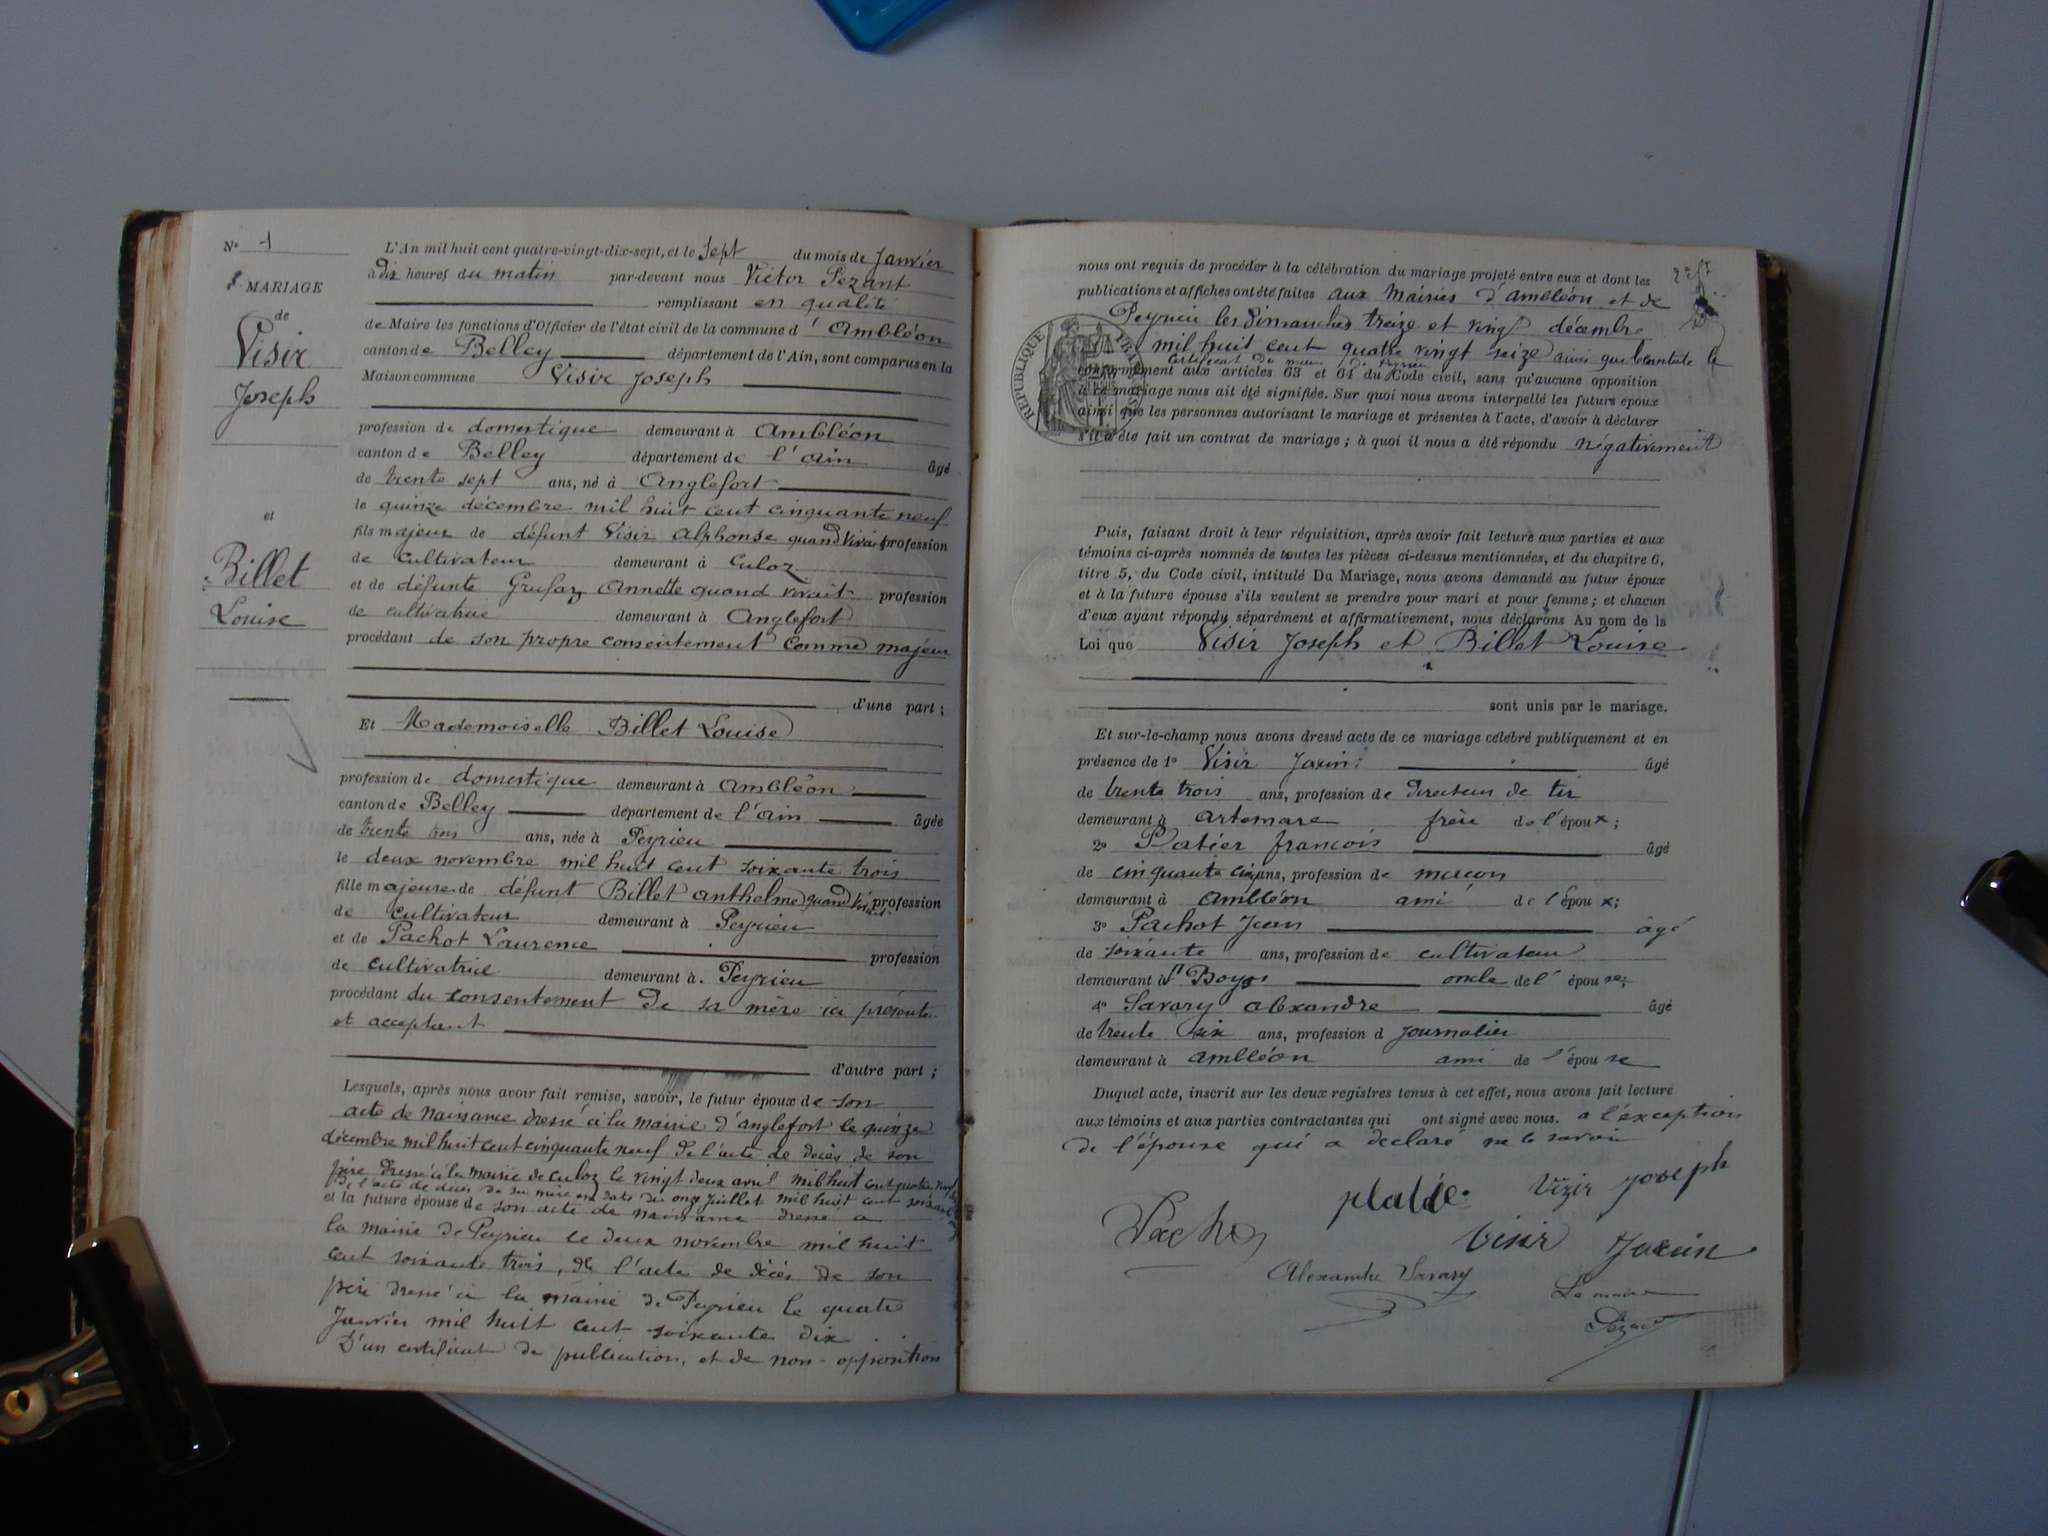 N° 1
MARIAGE
de
Visir
Joseph
et
Billet
Louise
L'An mil huit cent quatre-vingt-dix-sept, et le Sept du mois de Janvier
à dix heures du matin par-devant nous Victor Sezant
remplissant en qualité
de Maire les fonctions d'Officier de l'état civil de la commune d' Ambléon
canton de Belley département de l'Ain, sont comparus en la
Maison commune Visir Joseph
profession de domestique demeurant à Ambléon
canton de Belley département de l'ain âgé
de trente sept ans, né à Anglefort
le quinze décembre mil huit cent cinquante neuf
fils majeur de défunt Visir Alphonse quand vivait profession
de cultivateur demeurant à Culoz
et de défunte Grufaz Annette quand vivait profession
de cultivatrice demeurant à Anglefort
procédant de son propre consentement comme majeur
d'une part;
Et Mademoiselle Billet Louise
profession de domestique demeurant à Ambléon
canton de Belley département de l'ain âgée
de trente trois ans, née à Peyrieu
le deux novembre mil huit cent soixante trois
fille majeure de défunt Billet anthelme quand vivait profession
de cultivateur demeurant à Peyrieu
et de Pachot Laurence profession
de cultivatrice demeurant à Peyrieu
procédant du consentement de sa mère ici présente
et acceptant
d'autre part;
Lesquels, après nous avoir fait remise, savoir, le futur époux de son
acte de naissance dressé à la mairie d'anglefort le quinze
décembre mil huit cent cinquante neuf de l'acte de décès de son
père dressé à la mairie de culoz le vingt deux avril mil huit cent quatre vingt
De l'acte de décès de sa mère en date du onze juillet mil huit cent soixante
et la future épouse de son acte de naissance dressé à
la mairie de Peyrieu le deux novembre mil huit
cent soixante trois, de l'acte de décès de son
père dressé à la mairie de Peyrieu le quatre
Janvier mil huit cent soixante dix
D'un certificat de publication, et de non-opposition
nous ont requis de procéder à la célébration du mariage projeté entre eux et dont les
publications et affiches ont été faites aux Mairies d'ambléon et de
Peyrieu les Dimanches treize et vingt décembre
mil huit cent quatre vingt seize ainsi que le constate le
certificat de de Peyrieu
conformément aux articles 63 et 64 du Code civil, sans qu'aucune opposition
à ce mariage nous ait été signifiée. Sur quoi nous avons interpellé les futurs époux
ainsi que les personnes autorisant le mariage et présentes à l'acte, d'avoir à déclarer
s'il a été fait un contrat de mariage; à quoi il nous a été répondu négativement
REPUBLIQUE FRANÇAISE
Puis, faisant droit à leur réquisition, après avoir fait lecture aux parties et aux
témoins ci-après nommés de toutes les pièces ci-dessus mentionnées, et du chapitre 6,
titre 5, du Code civil, intitulé Du Mariage, nous avons demandé au futur époux
et à la future épouse s'ils veulent se prendre pour mari et pour femme; et chacun
d'eux ayant répondu séparément et affirmativement, nous déclarons Au nom de la
Loi que Visir Joseph et Billet Louise
sont unis par le mariage.
Et sur-le-champ nous avons dressé acte de ce mariage célébré publiquement et en
présence de 1° Visir Janin âgé
de trente trois ans, profession de directeur de tir
demeurant à Artemare frère de l'époux;
2° Platier françois âgé
de cinquante cinq ans, profession de macon
demeurant à Ambléon ami de l'époux;
3° Pachot Jean âgé
de soixante ans, profession de cultivateur
demeurant à St Boys oncle de l'épouse;
4° Savary alexandre âgé
de trente six ans, profession d journalier
demeurant à ambléon ami de l'épouse
Duquel acte, inscrit sur les deux registres tenus à cet effet, nous avons fait lecture
aux témoins et aux parties contractantes qui ont signé avec nous. a l'exception
de l'épouse qui a déclaré ne le savoir
Vizir Joseph
Visir Janin
Alexandre Savary
Le maire
Sezant